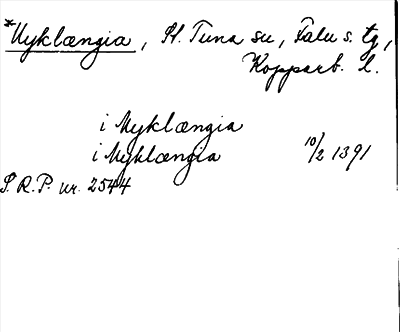 *Myklængia, St. Tuna sn, Falu s. tg,
Kopparb. l.
i Myklængia
i Myklængia 10/2 1391
S.R.P. nr. 2544